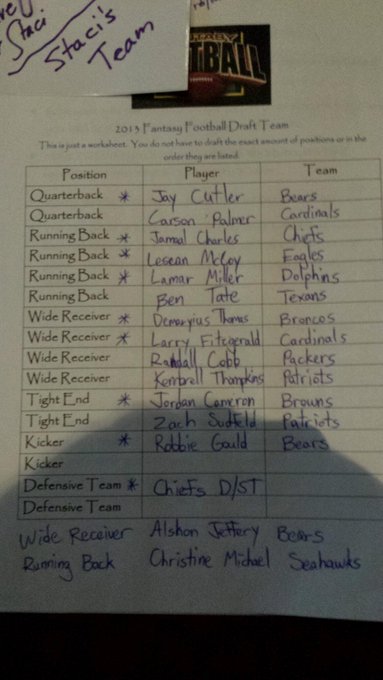 Staci
Staci's
Team
FANTASY
FOOTBALL
2013 Fantasy Football Draft Team
This is just a worksheet. You do not have to draft the exact amount of positions or in the
order they are listed
Position Player Team
Quarterback * Jay Cutler Bears
Quarterback Carson Palmer Cardinals
Running Back * Jamal Charles Chiefs
Running Back * Lesean McCoy Eagles
Running Back * Lamar Miller Dolphins
Running Back Ben Tate Texans
Wide Receiver * Demaryius Thomas Broncos
Wide Receiver * Larry Fitzgerald Cardinals
Wide Receiver Randall Cobb Packers
Wide Receiver Kembrell Thompkins Patriots
Tight End * Jordan Cameron Browns
Tight End Zach Sudfeld Patriots
Kicker * Robbie Gould Bears
Kicker
Defensive Team * Chiefs D/ST
Defensive Team
Wide Receiver Alshon Jeffery Bears
Running Back Christine Michael Seahawks